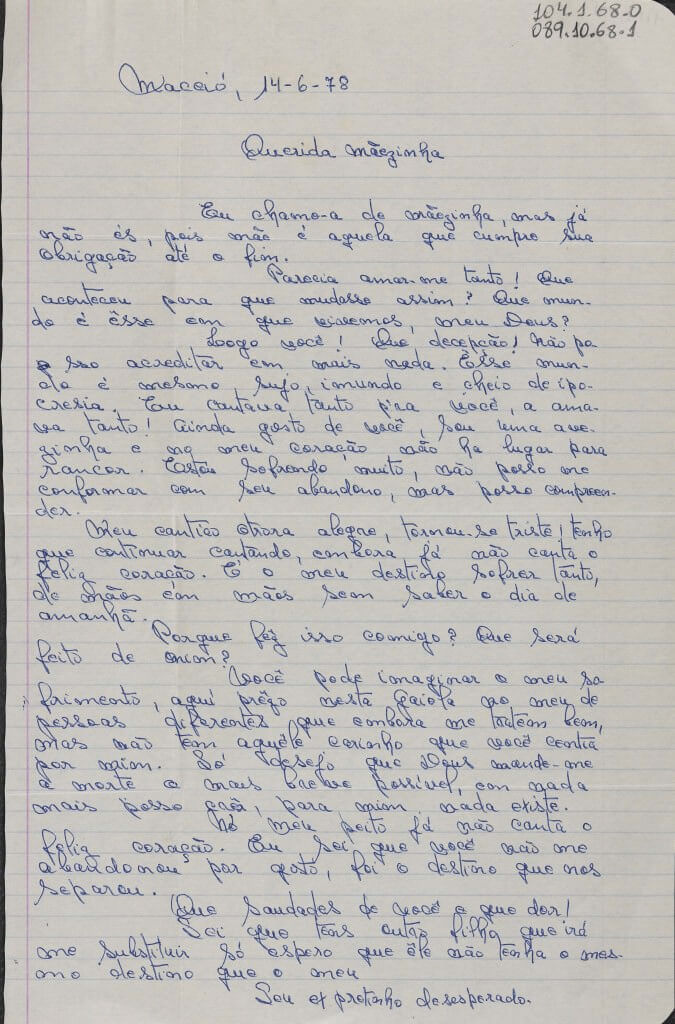 104.1.68-0
089.10.68-1
Maceió, 14-6-78
Querida mãezinha
Eu chamo-a de mãezinha, mas já
não és, pois mãe é aquela que cumpre sua
obrigação até o fim.
Parecia amar-me tanto! Que
aconteceu para que mudasse assim? Que mun-
do é êsse em que vivemos, meu Deus?
Loogo você! Que decepção! Não po
sso acreditar em mais nada. Êsse mun-
do é mesmo sujo, imundo e cheio de ipo-
cresia. Eu cantava tanto p'ra você, a ama-
va tanto! Ainda gosto de você, sou uma ave-
zinha e no meu coração não ha lugar para
rancor. Estou sofrendo muito, não posso me
conformar com seu abandono, mas posso compreen-
der.
Meu cantião otrora alegre, tornou-se triste! tenho
que continuar cantando, embora já não canta o
feliz coração. É o meu destino sofrer tanto,
de mãos em mãos sem saber o dia de
amanhã.
Porque fêz isso comigo? Que será
feito de mim?
Você pode imaginar o meu so
frimento, aqui prêzo nesta gaiola no meu de
pessoas diferentes que embora me tratem bem,
mas não tem aquêle carinho que você centia
por mim. Só desejo que Deus mande-me
a morte o mais breve possível, em nada
mais posso, para mim nada existe.
No meu peito já não canta o
feliz coração. Eu sei que você não me
abandonou por gosto, foi o destino que nos
separou.
Que saudades de você e que dor!
Sei que tens outro filho que irá
me substituir só espero que êle não tenha o mes-
mo destino que o meu
Seu ex pretinho desesperado.